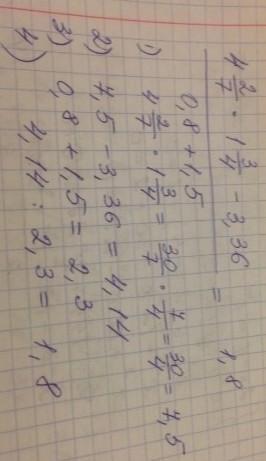 4 2/7 · 1 3/4 - 3,36 = 1,8
0,8 + 1,5
1) 4 2/7 · 1 3/4 = 30/7 · 7/4 = 30/4 = 7,5
2) 7,5 - 3,36 = 4,14
3) 0,8 + 1,5 = 2,3
4) 4,14 : 2,3 = 1,8